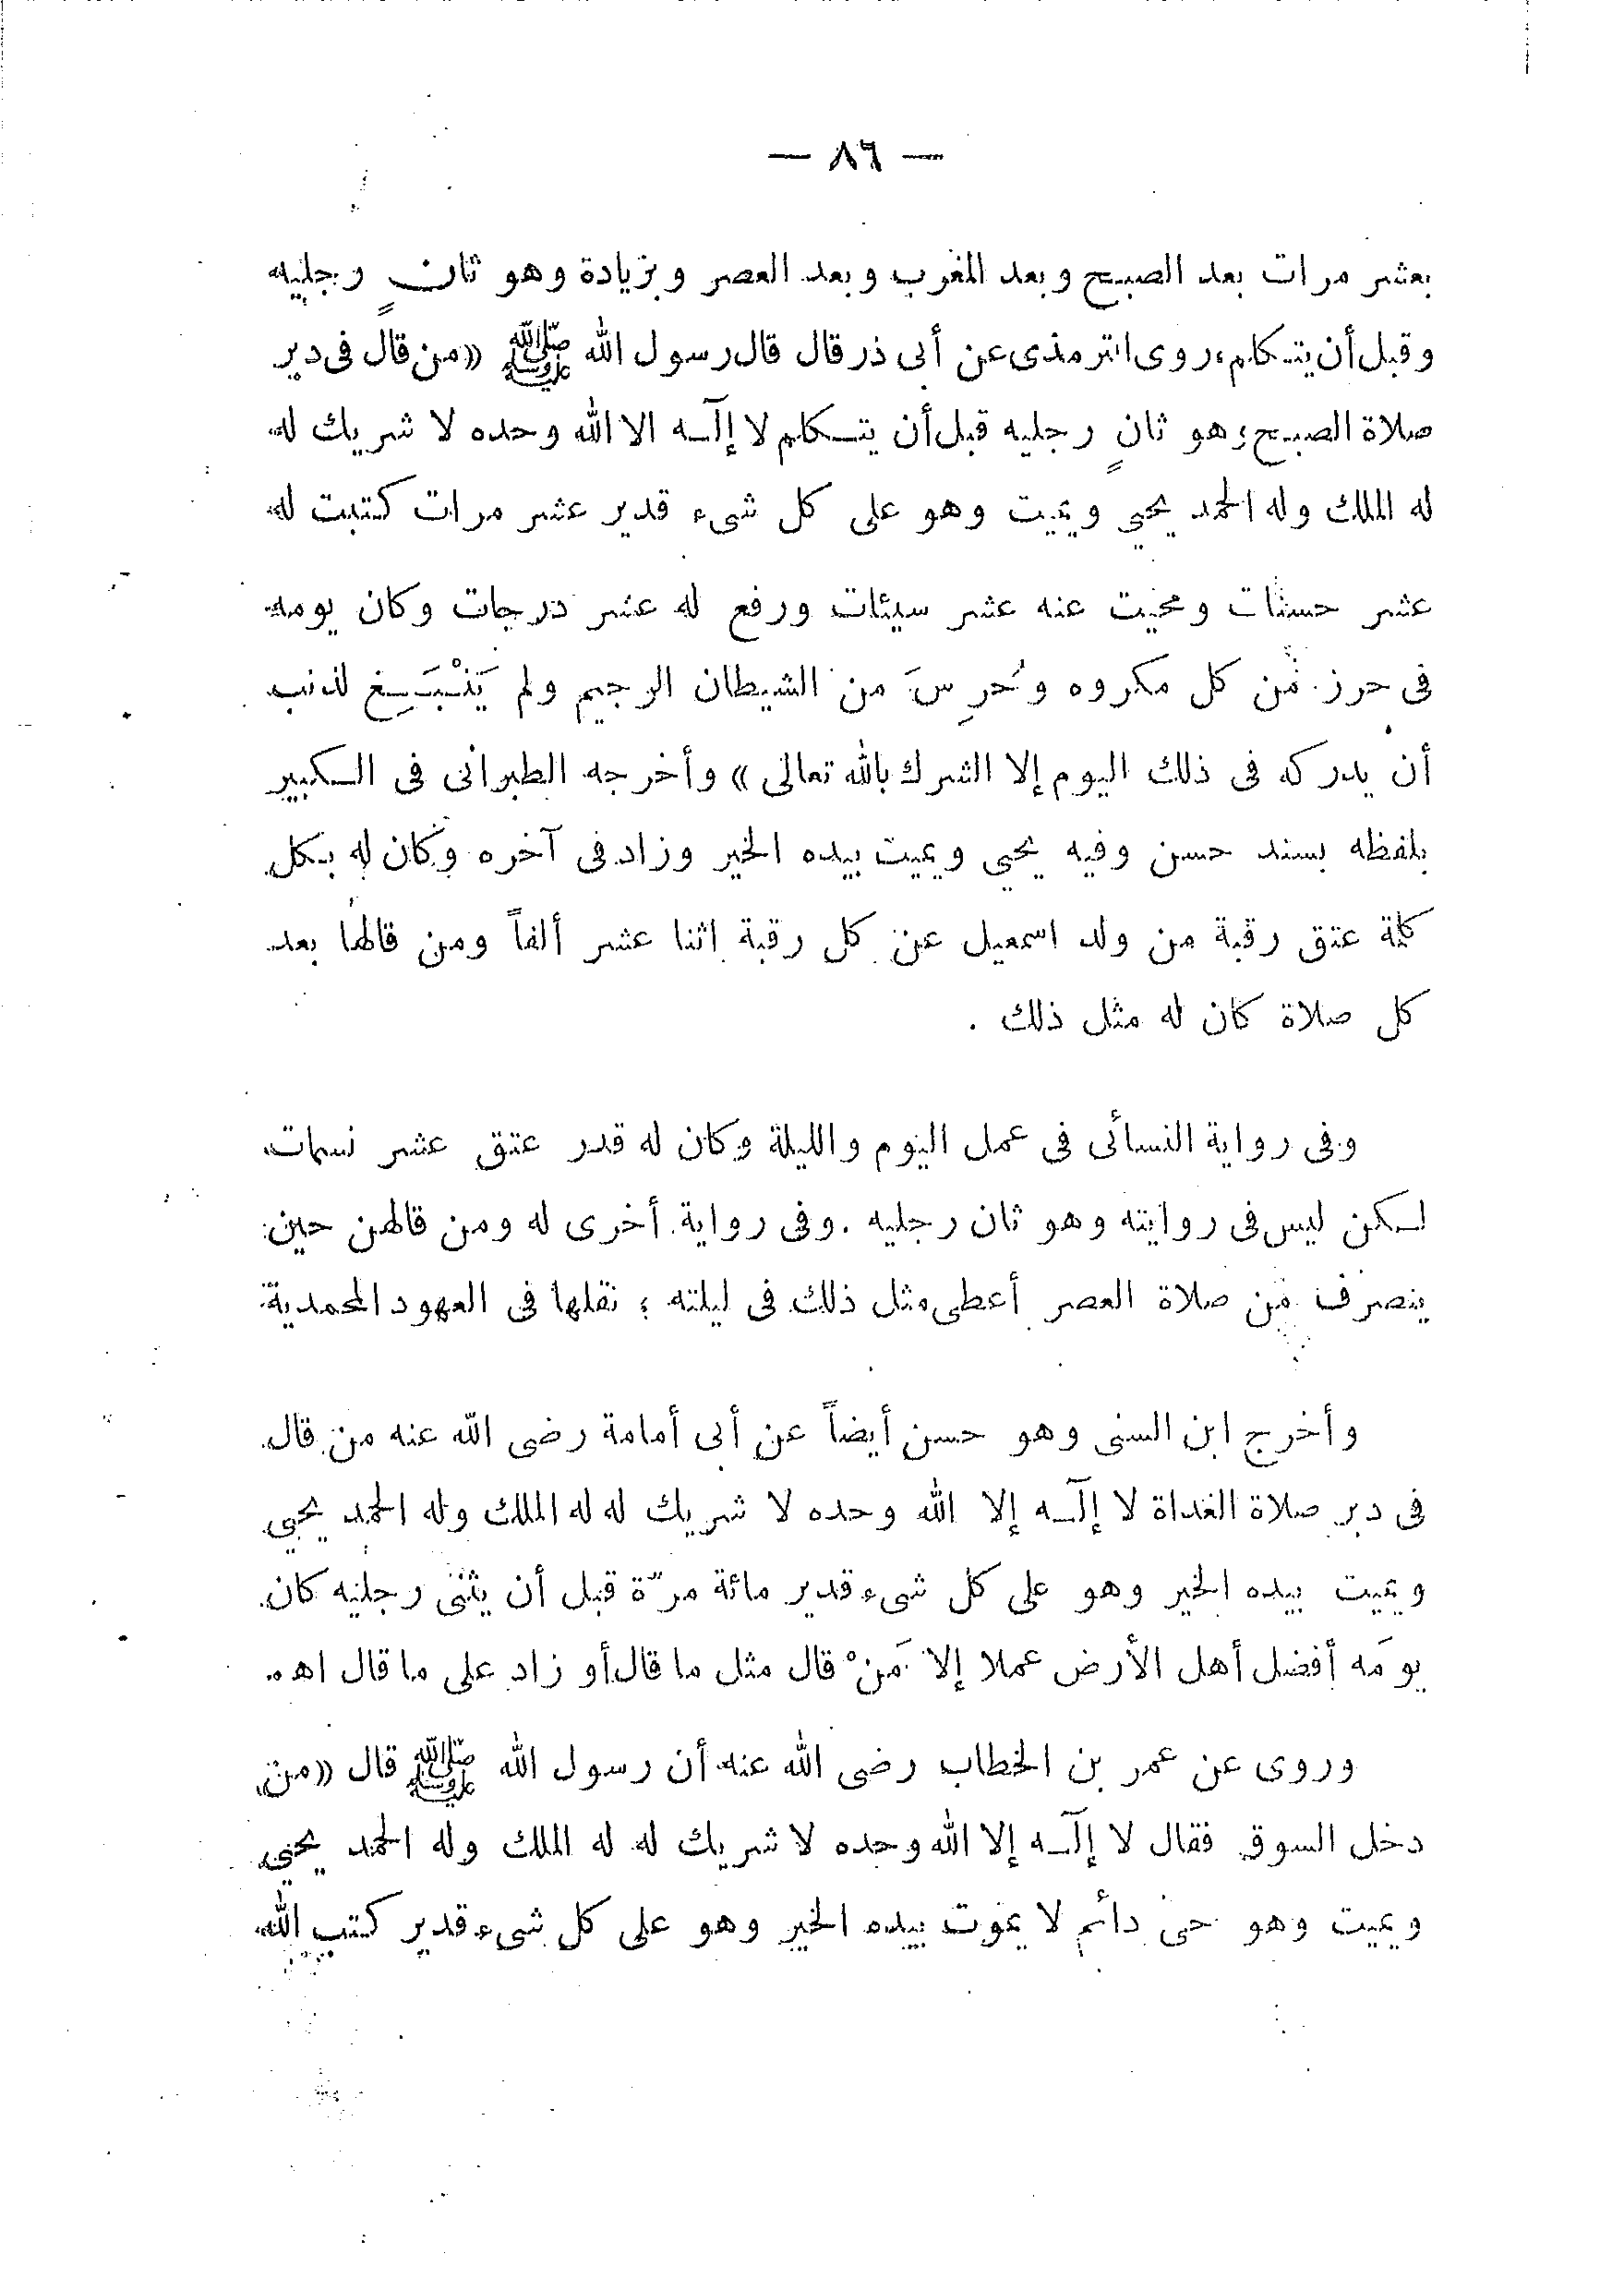 — ٨٦ —
بعشر مرات بعد الصبح وبعد المغرب وبعد العصر وبزيادة وهو ثانٍ رجليه
وقبل أن يتكلم، روى الترمذى عن أبى ذر قال قال رسول الله ﷺ «من قال فى دبر
صلاة الصبح وهو ثانٍ رجليه قبل أن يتكلم لا إلٓه الا الله وحده لا شريك له
له الملك وله الحمد يحيي ويميت وهو على كل شىء قدير عشر مرات كتبت له
عشر حسنات ومحيت عنه عشر سيئات ورفع له عشر درجات وكان يومه
فى حرز من كل مكروه وحُرِسَ من الشيطان الرجيم ولم يَنْبَغِ لذنب
أن يدركه فى ذلك اليوم إلا الشرك بالله تعالى» وأخرجه الطبرانى فى الكبير
بلفظه بسند حسن وفيه يحيي ويميت بيده الخير وزاد فى آخره وكان له بكل
كلمة عتق رقبة من ولد اسمعيل عن كل رقبة اثنا عشر ألفاً ومن قالها بعد
كل صلاة كان له مثل ذلك .
وفى رواية النسائى فى عمل اليوم والليلة وكان له قدر عتق عشر نسمات
لكن ليس فى روايته وهو ثان رجليه . وفى رواية أخرى له ومن قالهن حين
ينصرف من صلاة العصر أعطى مثل ذلك فى ليلته ؛ نقلها فى العهود المحمدية
وأخرج ابن السنى وهو حسن أيضاً عن أبى أمامة رضى الله عنه من قال
فى دبر صلاة الغداة لا إلٓه إلا الله وحده لا شريك له له الملك وله الحمد يحيي
ويميت بيده الخير وهو على كل شىء قدير مائة مرّة قبل أن يثنى رجليه كان
يومَه أفضل أهل الأرض عملا إلا مَنْ قال مثل ما قال أو زاد على ما قال اه .
وروى عن عمر بن الخطاب رضى الله عنه أن رسول الله ﷺ قال «من
دخل السوق فقال لا إلٓه إلا الله وحده لا شريك له له الملك وله الحمد يحيي
ويميت وهو حى دائم لا يموت بيده الخير وهو على كل شىء قدير كتب الله